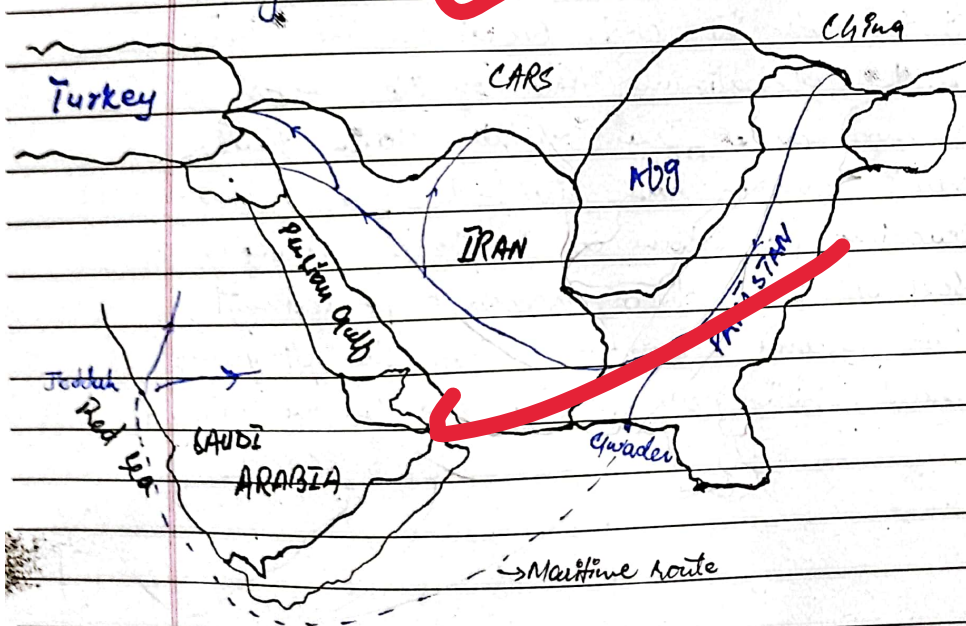 China
CARS
Turkey
Abg
IRAN
Persian Gulf
PAKISTAN
Jeddah
Red Sea
SAUDI
ARABIA
Gwader
Maritime route